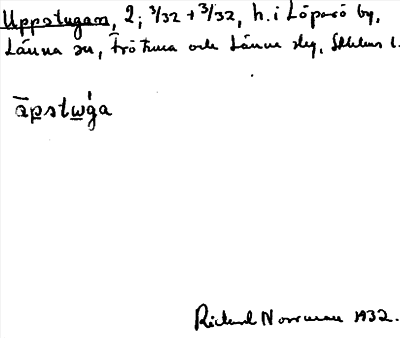 Uppstugan, 2; 3/32 + 3/32, h. i Löparö by,
Länna sn, Frötuna och Länna slg, Sthlms l.
āpstwga
Rickard Norrman 1932.